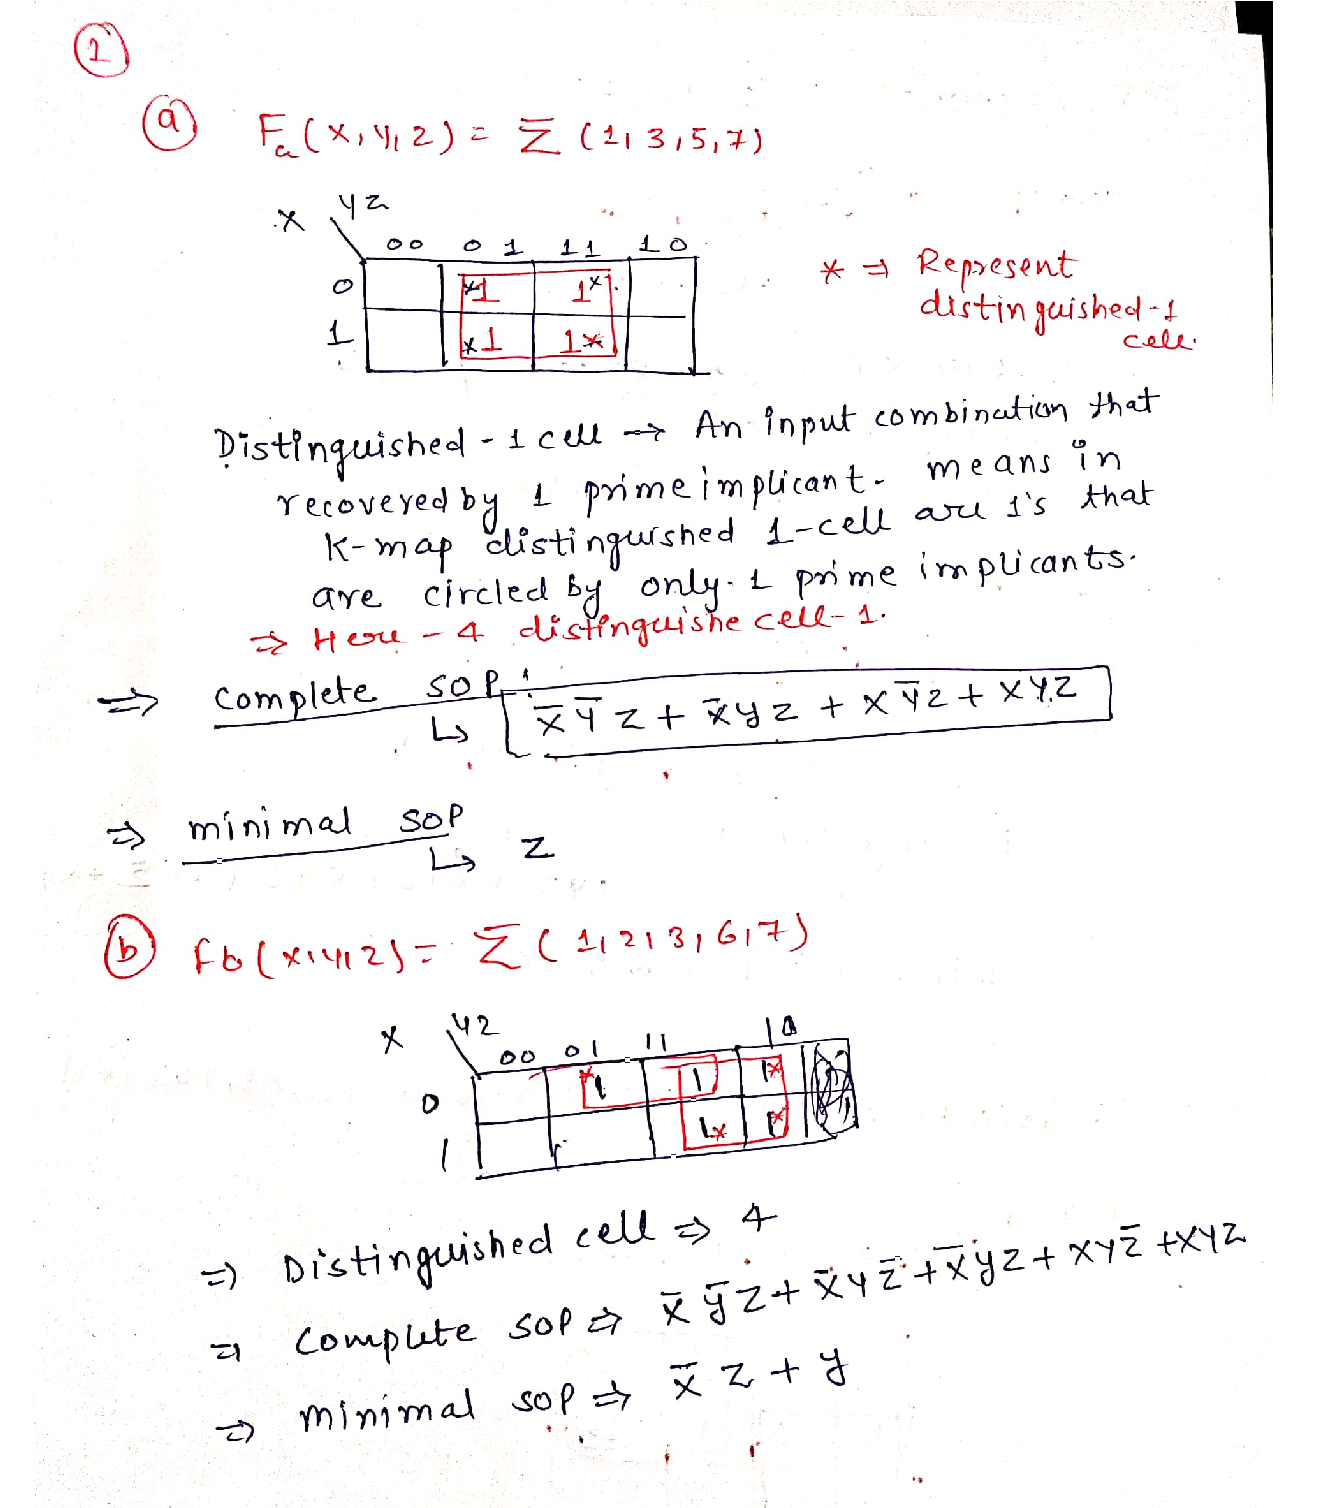 1
a F_a(x,y,z) = Σ (1,3,5,7)
x yz
00 01 11 10
0 *1 1*
1 *1 1*
* ⇒ Represent
distinguished-1
cell.
Distinguished - 1 cell → An input combination that
recovered by 1 prime implicant. means in
K-map distinguished 1-cell are 1's that
are circled by only 1 prime implicants.
⇒ Here - 4 distinguishe cell-1.
⇒ complete SOP:
↳ x̄ȳz + x̄yz + xȳz + xyz
⇒ minimal SOP
↳ z
b Fb(x,y,z) = Σ (1,2,3,6,7)
x yz
00 01 11 10
0 *1 1 1*
1 1* 1*
⇒ Distinguished cell ⇒ 4
⇒ Complete SOP ⇒ x̄ȳz + x̄yz̄ + x̄yz + xyz̄ + xyz
⇒ minimal SOP ⇒ x̄z + y